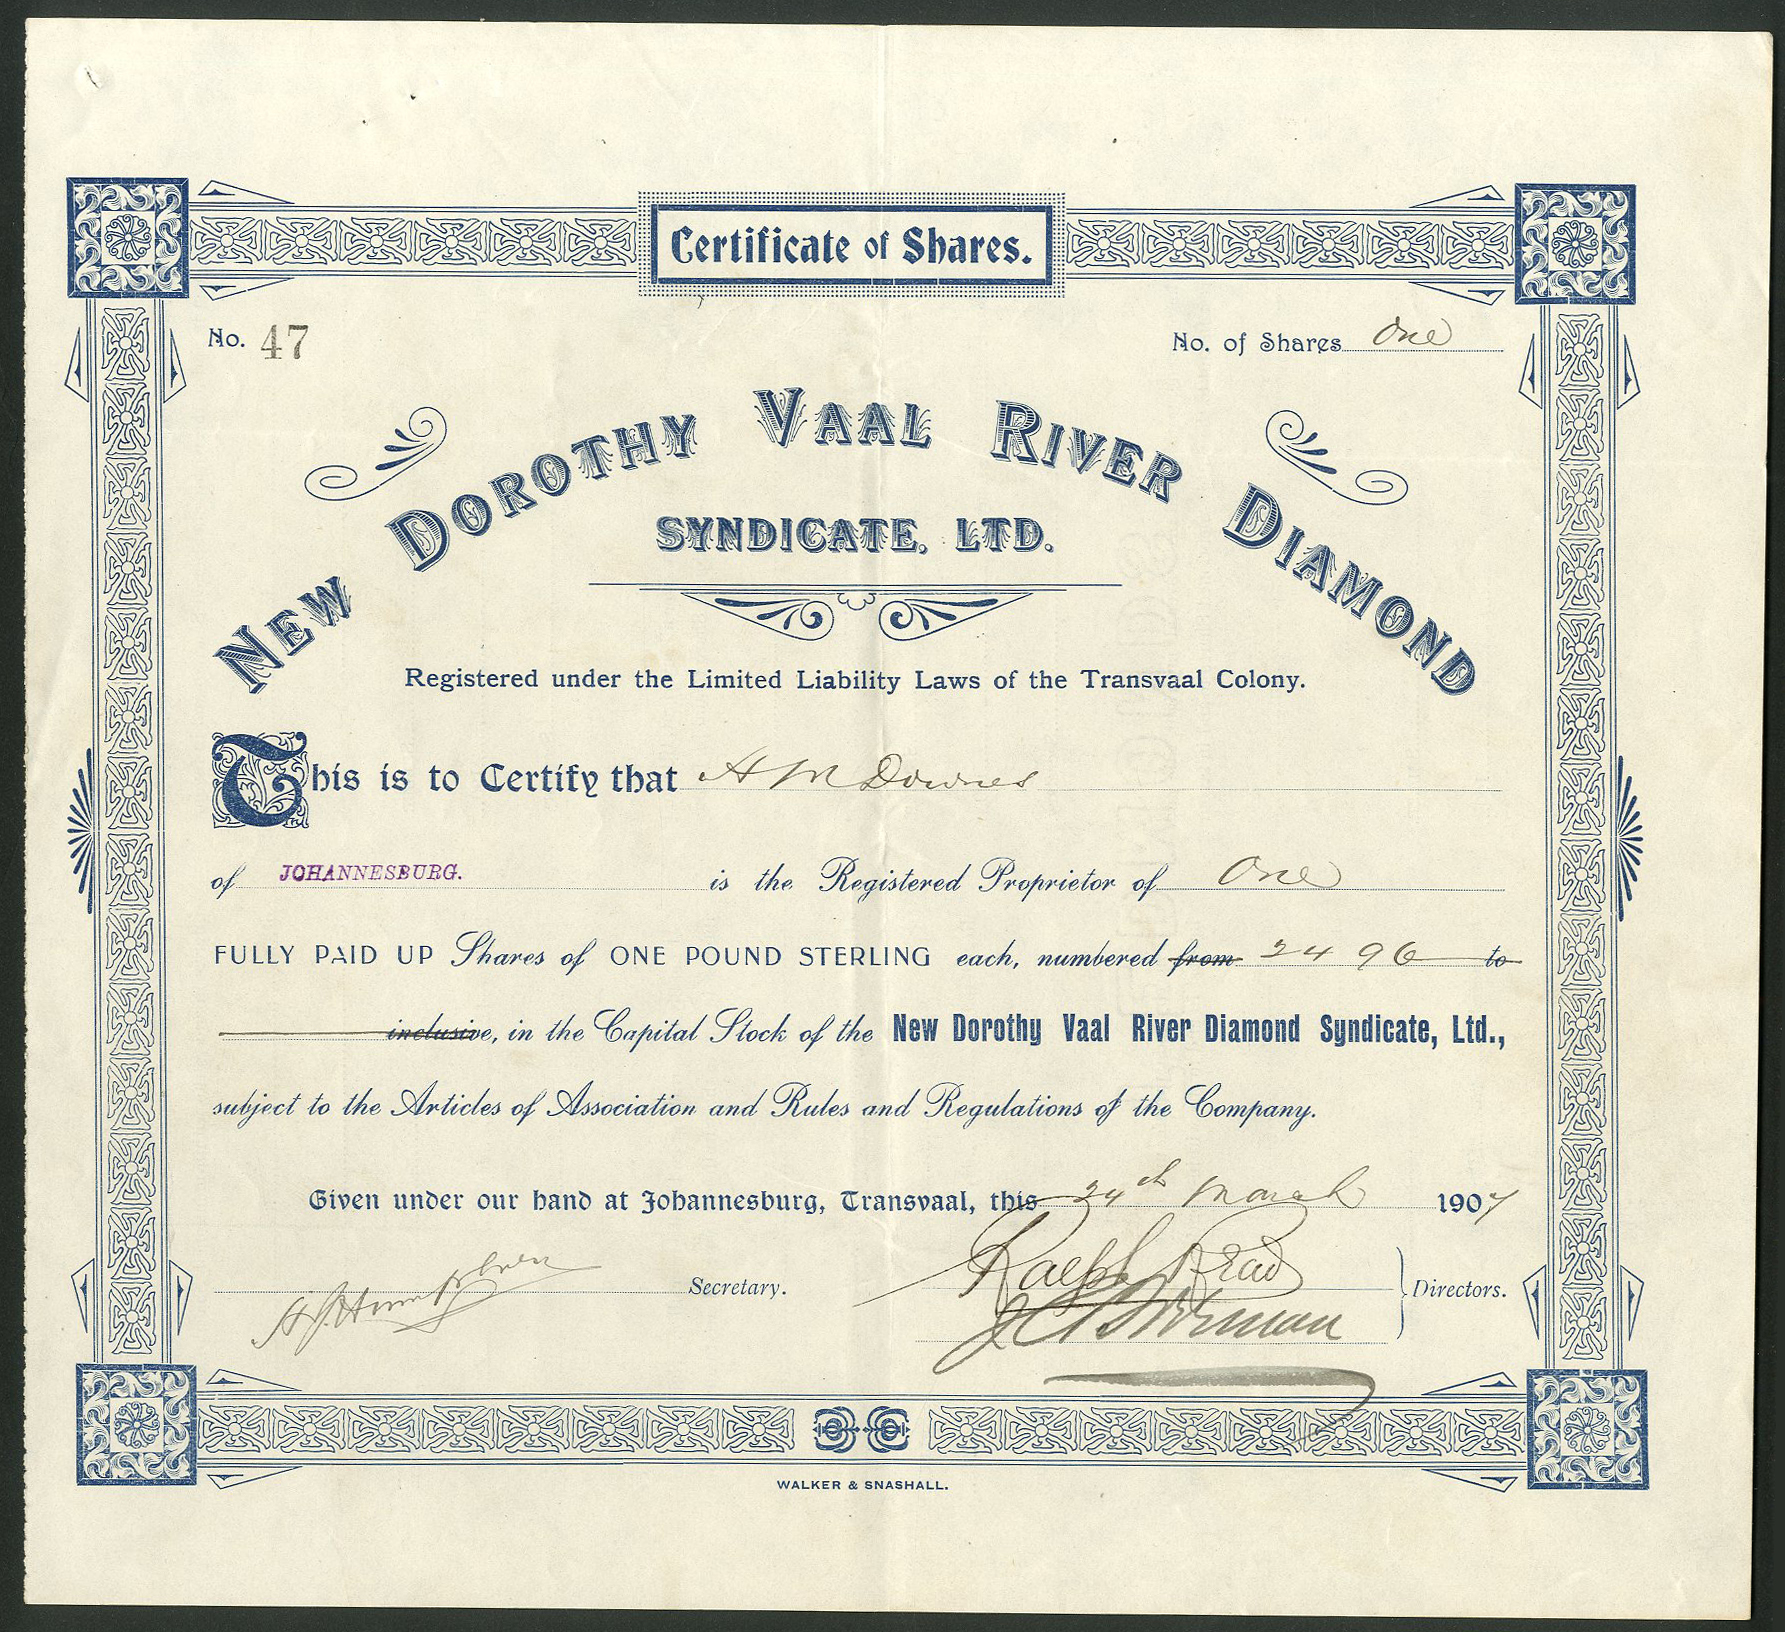 Certificate of Shares.
No. 47
No. of Shares One
NEW DOROTHY VAAL RIVER DIAMOND
SYNDICATE, LTD.
Registered under the Limited Liability Laws of the Transvaal Colony.
This is to Certify that H M Downes
of JOHANNESBURG. is the Registered Proprietor of One
FULLY PAID UP Shares of ONE POUND STERLING each, numbered from 2496 to
inclusive, in the Capital Stock of the New Dorothy Vaal River Diamond Syndicate, Ltd.,
subject to the Articles of Association and Rules and Regulations of the Company.
Given under our hand at Johannesburg, Transvaal, this 24th March 1907
Secretary.
Ralph Read
Directors.
WALKER & SNASHALL.